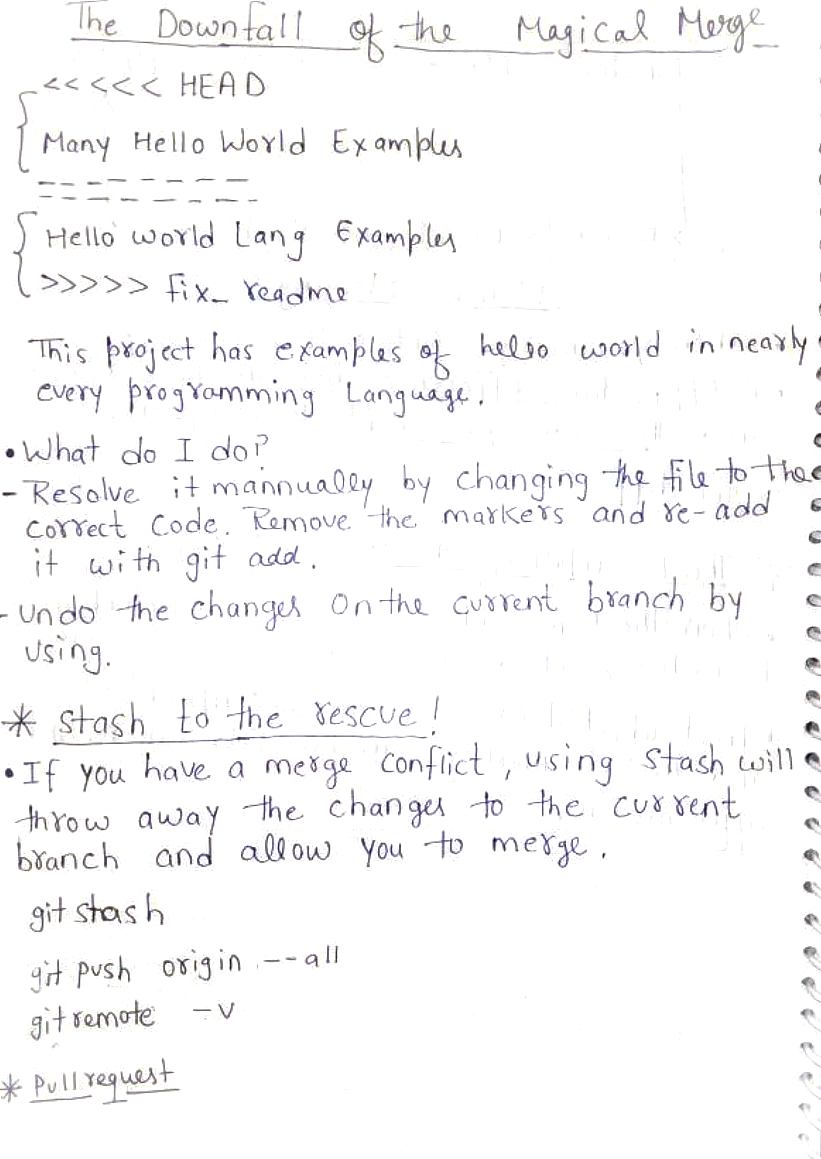 The Downfall of the Magical Merge
<<<<< HEAD
Many Hello World Examples
========
Hello world Lang Examples
>>>>> fix_readme
This project has examples of helso world in nearly
every programming Language.
• What do I do?
- Resolve it mannually by changing the file to the
correct code. Remove the markers and re-add
it with git add.
- Undo the changes on the current branch by
using.
* Stash to the rescue!
• If you have a merge conflict, using stash will
throw away the changes to the current
branch and allow you to merge.
git stash
git push origin --all
git remote -v
* Pull request